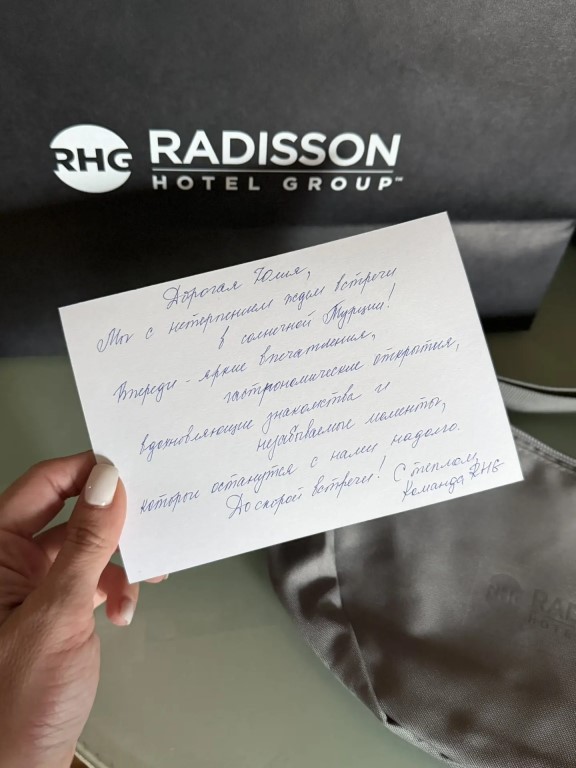 RHG RADISSON
HOTEL GROUP™
Дорогая Юлия,
Мы с нетерпением ждем встречи
в солнечной Турции!
Впереди - яркие впечатления,
гастрономические открытия,
вдохновляющие знакомства и
незабываемые моменты,
которые останутся с нами надолго.
До скорой встречи! С теплом,
Команда RHG
RHG RAD
HOTEL